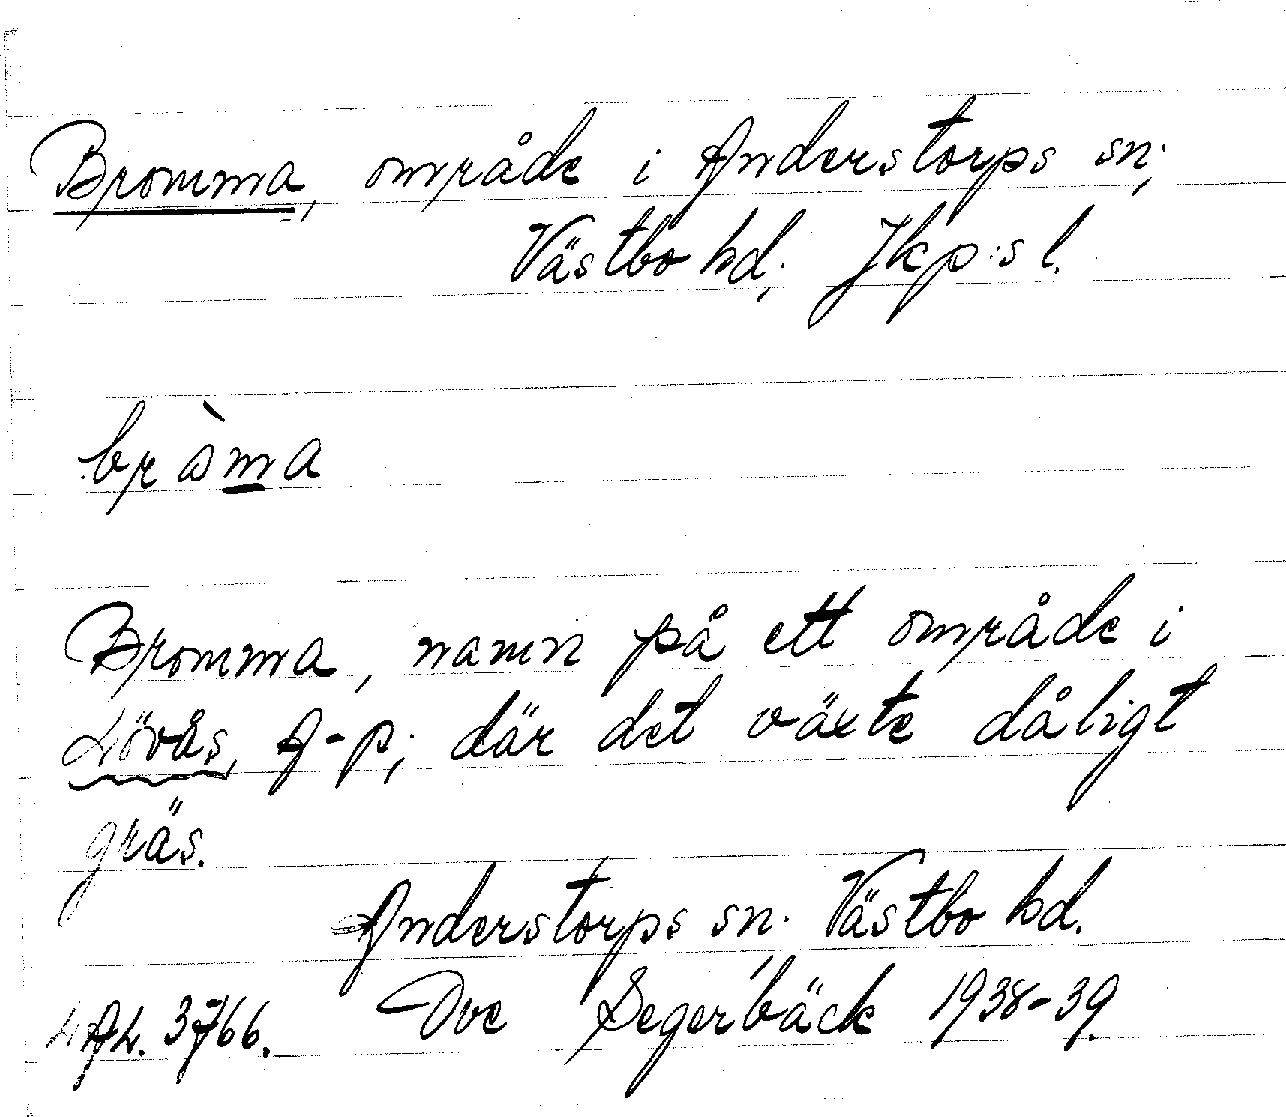 Bromma, område i Anderstorps sn;
Västbo hd; Jkp:s l.
bròma
Bromma, namn på ett område i
Lövås, A-p; där det växte dåligt
gräs.
Anderstorps sn. Västbo hd.
LAL. 3766. Ove Segerbäck 1938-39.